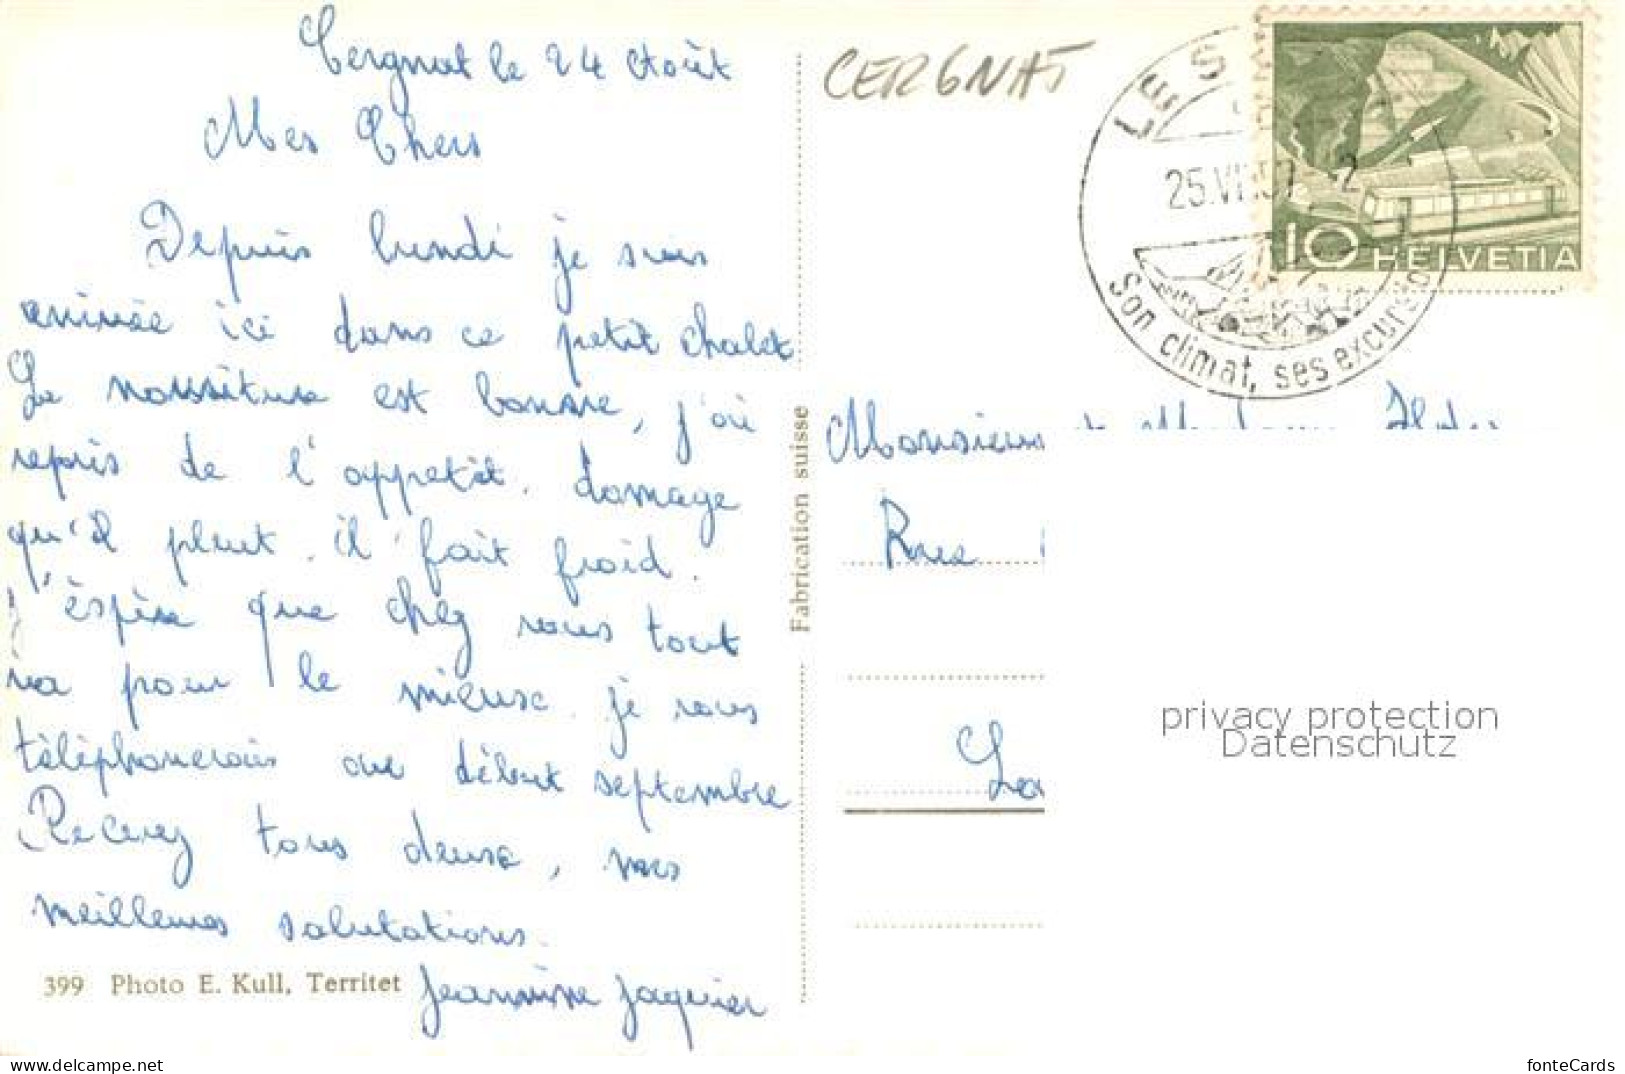 Cergnat le 24 Août
Mes Chers
Depuis lundi je suis
arrivée ici dans ce petit chalet
La nourriture est bonne, j'ai
repris de l'appetit. domage
qu'il pleut. il fait froid.
J'éspère que chez vous tout
va pour le mieux. je vous
téléphonerais au début septembre
Recevez tous deux, mes
meilleures salutations.
Jeannine Jaquier
399 Photo E. Kull, Territet
Fabrication suisse
CERGNAT
LE S
25.VI 57 -2
Son climat, ses excursio
10 HELVETIA
Monsieur
Rue
La
privacy protection
Datenschutz
fonteCards